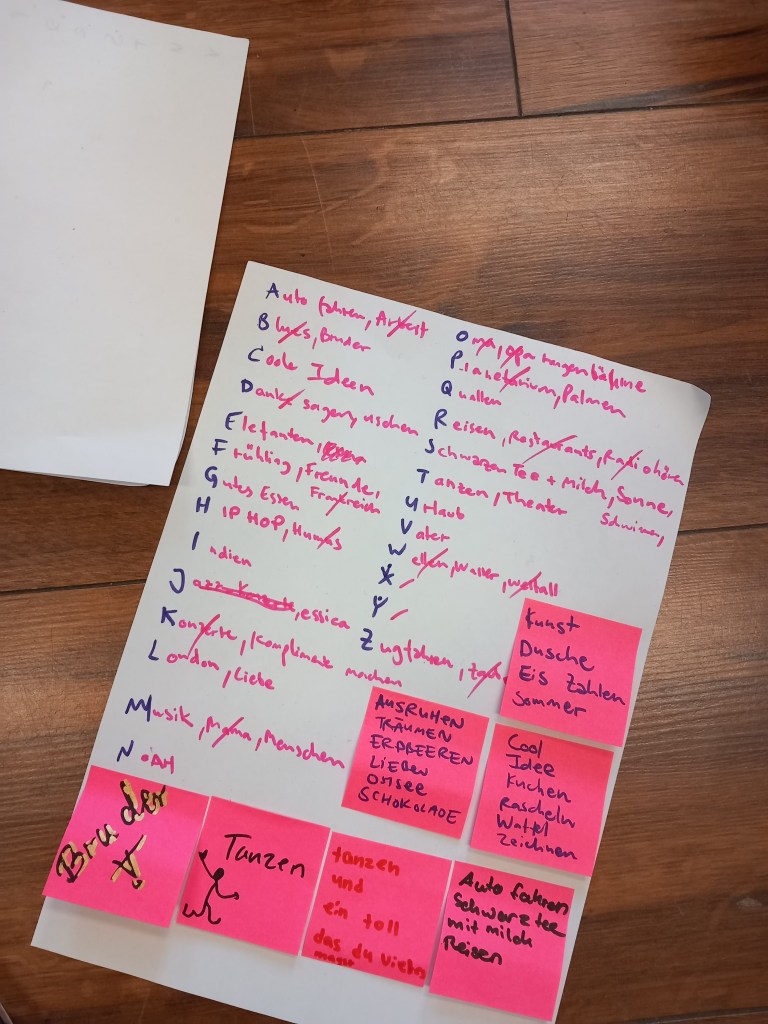 Auto fahren, Arbeit
Blues, Bruder
Coole Ideen
Danke sagen,
Elefanten,
Frühling, Freunde,
Frankreich
Gutes Essen
HIP HOP, Humus
Indien
Jazz Konzerte, essica
Konzerte, Komplimente machen
London, Liebe
Musik, Mama, Menschen
NOAH
Oma, Opa
Planetarium, Palmen
Quallen
Reisen, Restaurants, Radio hören
Schwarzen Tee + Milch, Sonne,
Tanzen, Theater
Urlaub
Vater
Wellen, Wasser, Weltall
X
Y
Zugfahren,
Kunst
Dusche
Eis Zahlen
Sommer
AUSRUHEN
TRÄUMEN
ERDBEEREN
LIEBEN
OSTSEE
SCHOKOLADE
Cool
Idee
Kuchen
Rascheln
Waffel
Zeichnen
Bruder
Tanzen
tanzen
und
ein toll
das du
Auto fahren
Schwarztee
mit milch
Reisen